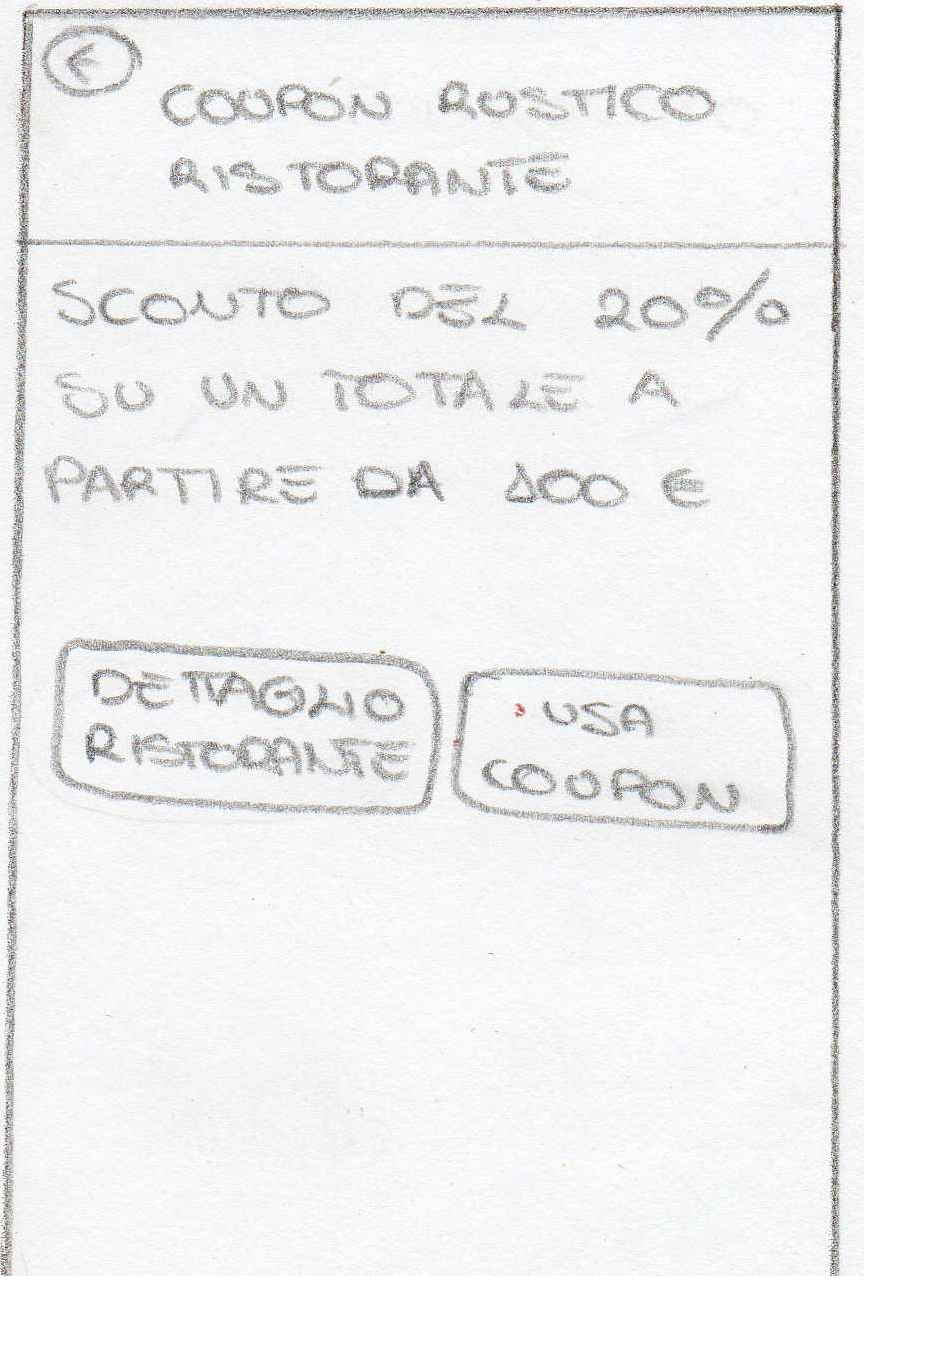 COUPÓN RUSTICO
RISTORANTE
SCONTO DEL 20%
SU UN TOTALE A
PARTIRE DA 100 €
DETTAGLIO
RISTORANTE
USA
COUPON